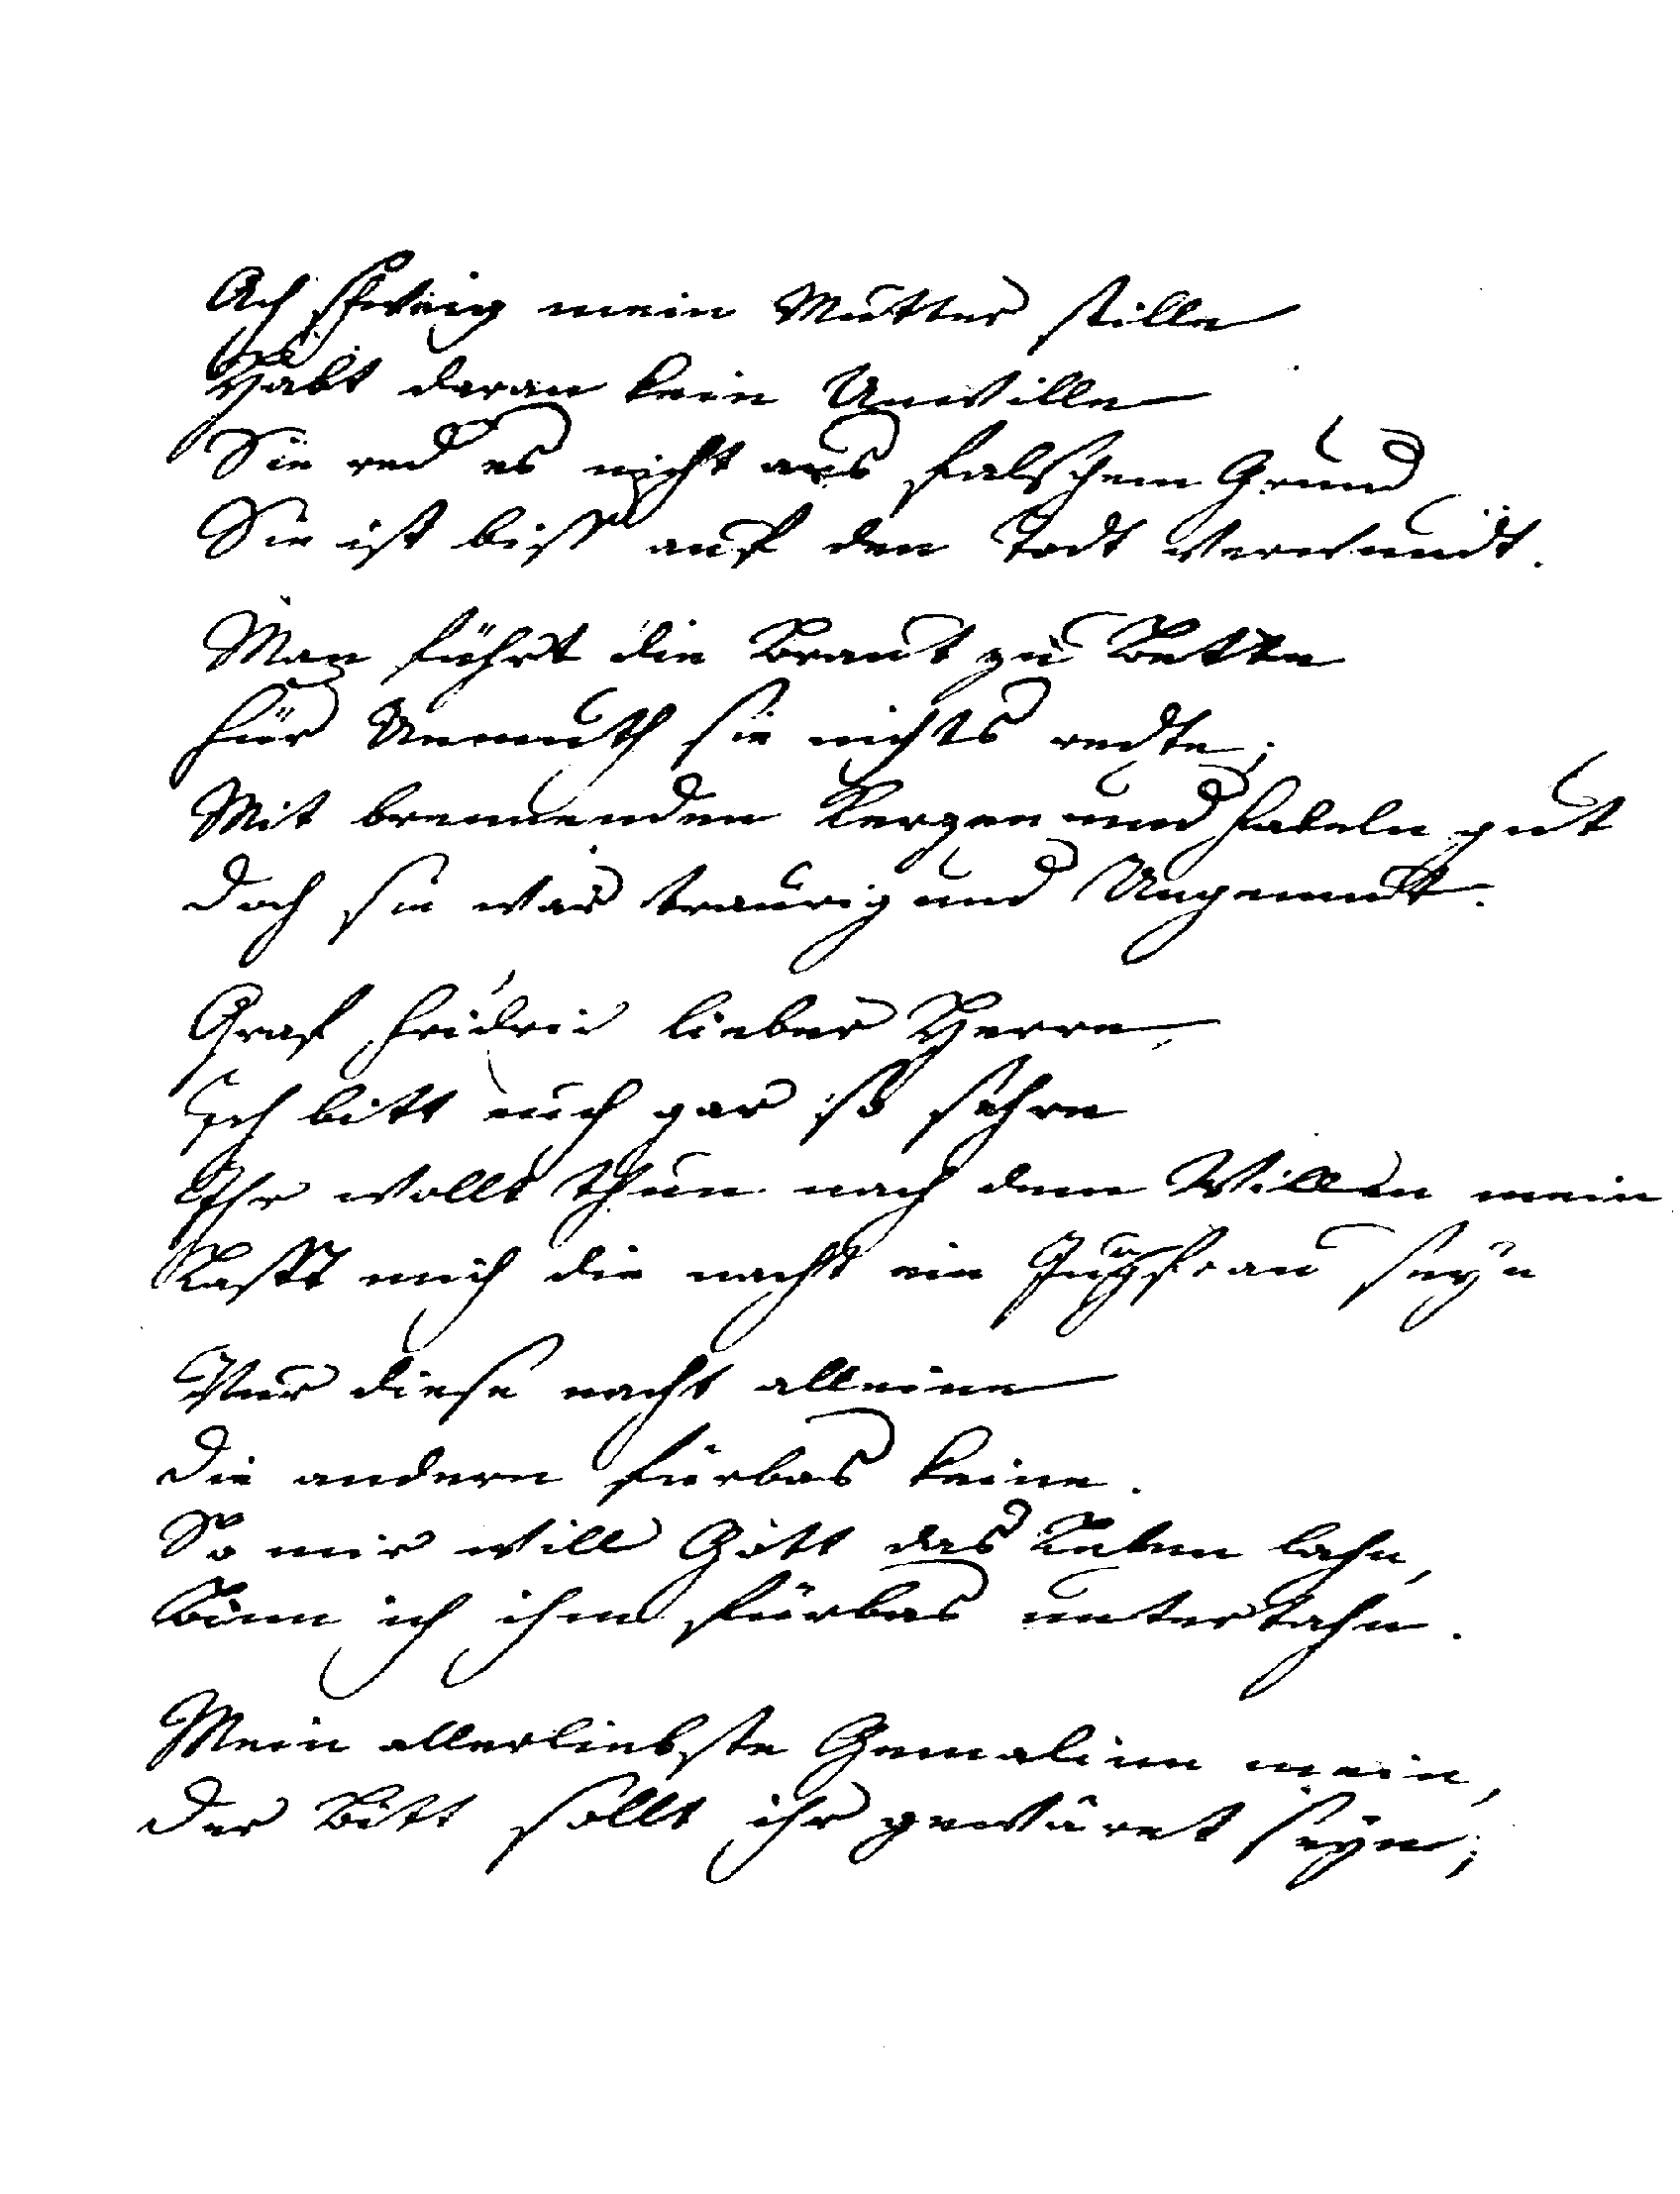 Ach schweig mein Mutter stille
Habt daran kein Unwille
Sie red es nicht aus falschem Grund
Sie ist biss auf den Todt verwundt.
Man führt die Braut zu Bette
für Unmuth sie nichts redte;
Mit brennenden Kerzen und fakeln gut
doch sie war traurig und Ungemuth.
Graf fridrich lieber Herre,
Ich bitt euch gar so sehre
Ihr wollt thun nach dem Willen mein
Lasst mich die nacht ein Jungfrau seyn
Nur diese nacht alleine
die andern fürbas keine.
So mir will Gott das Leben lahn,
Binn ich ihm fürbas untertahn.
Mein allerliebste Gemalinn mein,
der Bitt sollt ihr gewäret seyn;